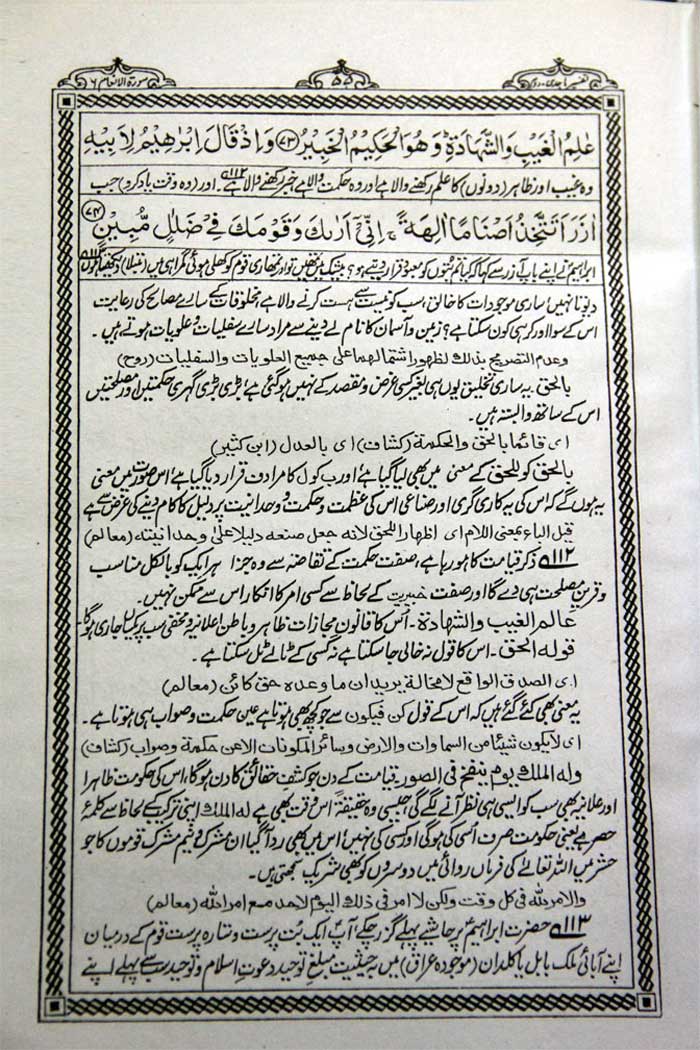 تفسیر ماجدی - دوم
۵۵
سورة الانعام ۶
عٰلِمُ الْغَيْبِ وَالشَّهَادَةِ ؕ وَهُوَ الْحَكِيْمُ الْخَبِيْرُ ﴿۷۳﴾ وَاِذْ قَالَ اِبْرٰهِيْمُ لِاَبِيْهِ
وہ غیب اور ظاہر (دونوں) کا علم رکھنے والا ہے اور وہ حکمت والا ہے خبر رکھنے والا ہے ۱۱۲ اور (وہ وقت یاد کرو) جب
اٰزَرَ اَتَتَّخِذُ اَصْنَامًا اٰلِهَةً ۚ اِنِّيْٓ اَرٰىكَ وَقَوْمَكَ فِيْ ضَلٰلٍ مُّبِيْنٍ ﴿۷۴﴾
ابراہیم نے اپنے باپ آزر سے کہا کہ کیا تم بتوں کو معبود قرار دیتے ہو؟ بیشک میں تمھیں اور تمھاری قوم کو کھلی ہوئی گمراہی میں (مبتلا) دیکھتا ہوں ۱۱۳
دیوتا نہیں! ساری موجودات کا خالق، سب کو نیست سے ہست کرنے والا ہے، مخلوقات کے سارے مصالح کی رعایت
اس کے سوا اور کر ہی کون سکتا ہے؟ زمین و آسمان کا نام لے دینے سے مراد سارے سفلیات و علویات ہوتے ہیں۔
وعدم التصریح بذلك لظهور اشتمالهما علی جمیع العلویات والسفلیات (روح)
بالحق۔ یہ ساری تخلیق یوں ہی بغیر کسی غرض و مقصد کے نہیں ہو گئی ہے، بڑی بڑی گہری حکمتیں اور مصلحتیں
اس کے ساتھ وابستہ ہیں۔
ای قائما بالحق والحکمة (کشاف) ای بالعدل (ابن کثیر)
بالحق کو للحق کے معنی میں بھی لیا گیا ہے، اور ب کو ل کا مرادف قرار دیا گیا ہے، اس صورت میں معنی
یہ ہوں گے کہ اس کی یہ کاری گری اور صناعی اس کی عظمت و حکمت و وحدانیت پر دلیل کا کام دینے کی غرض سے ہے
قیل الباء بمعنی اللام ای اظهارا للحق لانه جعل صنعه دلیلا علی وحدانیته (معالم)
۱۱۲ ذکر قیامت کا ہو رہا ہے، صفت حکمت کے تقاضہ سے وہ جزا ہر ایک کو بالکل مناسب
و قرین مصلحت ہی دے گا اور صفت خبیریت کے لحاظ سے کسی امر کا انکار اس سے ممکن نہیں۔
عالم الغیب والشهادة۔ اُس کا قانون مجازات ظاہر و باطن اعلانیہ و مخفی سب پر یکساں جاری ہوگا۔
قوله الحق۔ اس کا قول نہ خالی جا سکتا ہے نہ کسی کے ٹالے ٹل سکتا ہے۔
ای الصدق الواقع لا محالة یرید ان ما وعده حق کائن (معالم)
یہ معنی بھی کئے گئے ہیں کہ اس کے قول کن فیکون سے جو کچھ بھی ہوتا ہے عین حکمت و صواب ہی ہوتا ہے۔
ای لا یکون شیئا من السماوات والارض وسائر المکونات الا عن حکمة وصواب (کشاف)
وله الملك یوم ینفخ فی الصور۔ قیامت کے دن جو کشف حقائق کا دن ہوگا، اس کی حکومت ظاہرا
اور علانیہ بھی سب کو ایسی ہی نظر آنے لگے گی، جیسی وہ حقیقۃً اس وقت بھی ہے له الملك اپنی ترکیب کے لحاظ سے کلمۂ
حصر ہے یعنی حکومت صرف اُسی کی ہوگی اور کسی کی نہیں! اس میں بھی رد آ گیا ان مشرک و نیم مشرک قوموں کا جو
حشر میں اللہ تعالےٰ کی فرماں روائی میں دوسروں کو بھی شریک سمجھتی ہیں۔
والامر لله فی کل وقت ولکن لا امر فی ذلك الیوم لاحد مع امر الله (معالم)
۱۱۳ حضرت ابراہیمؑ پر حاشیے پہلے گزر چکے، آپؑ ایک بُت پرست و ستارہ پرست قوم کے درمیان
اپنے آبائی ملک بابل یا کلدان (موجودہ عراق) میں بہ حیثیت مبلغ توحید دعوتِ اسلام و توحید سب سے پہلے اپنے